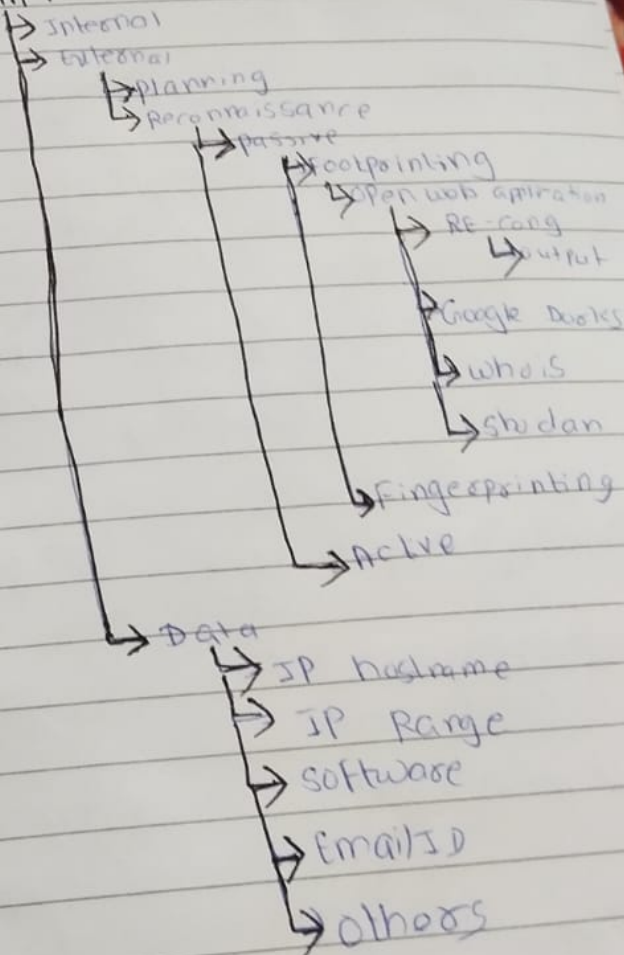 Internal
External
planning
Reconnaissance
passive
Footprinting
open web appliration
RE-cong
output
Google Dorks
whois
shodan
Fingerprinting
Active
Data
IP hostname
IP Range
software
Email ID
others